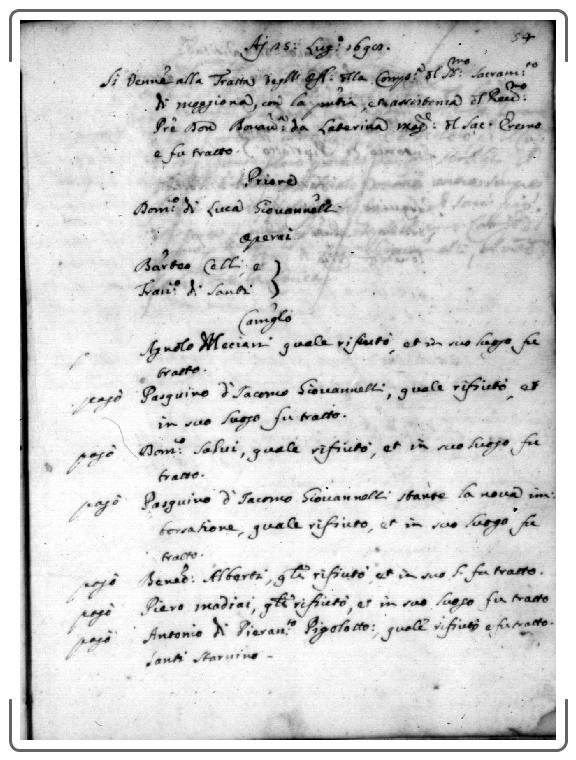 54
Aj 25: Lug.o 1690.
Si Venne alla Tratta degli Ofl: della Comp.a del SS.mo Sacram.to
di moggiona, con la pntia, et assistenza del Reed.mo
Pre Don Bonau.a da Laterina mag.r del Sac. Eremo
e fu tratto.
Priore
Dom.o di Luca Giovannelli
Operai
Barteo Celli, e
Fran.o di Santi
Camglo
Agnolo Meciani quale rifiutò, et in suo luogo fu
tratto.
pagò Pasquino d'Iacomo Giovannelli, quale rifiutò, et
in suo luogo fu tratto.
pagò Dom.o Salvi, quale rifiutò, et in suo luogo fu
tratto.
pagò Pasquino d'Iacomo Giovannelli stante la nova im-
borsatione, quale rifiutò, et in suo luogo fu
tratto.
pagò Bened: Alberti, qle rifiutò et in suo l. fu tratto.
pagò Piero madiai, qle rifiutò, et in suo luogo fu tratto
pagò Antonio di Pieran.to Pigolotto:, quale rifiutò e fu tratto.
Santi Starnino